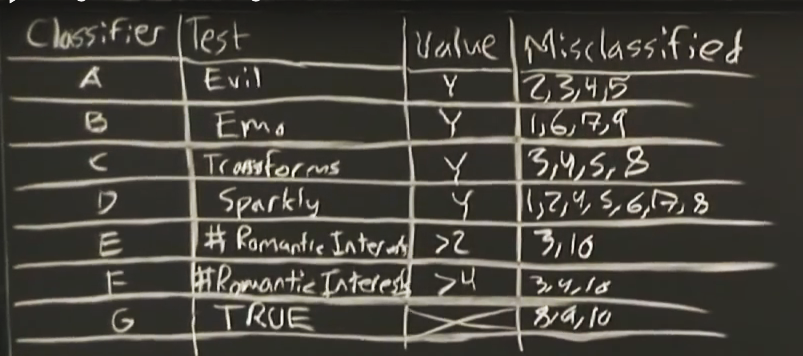 Classifier Test Value Misclassified
A Evil Y 2,3,4,5
B Emo Y 1,6,7,9
C Transforms Y 3,4,5,8
D Sparkly Y 1,2,4,5,6,7,8
E # Romantic Interests >2 3,10
F #Romantic Interests >4 3,4,10
G TRUE 8,9,10